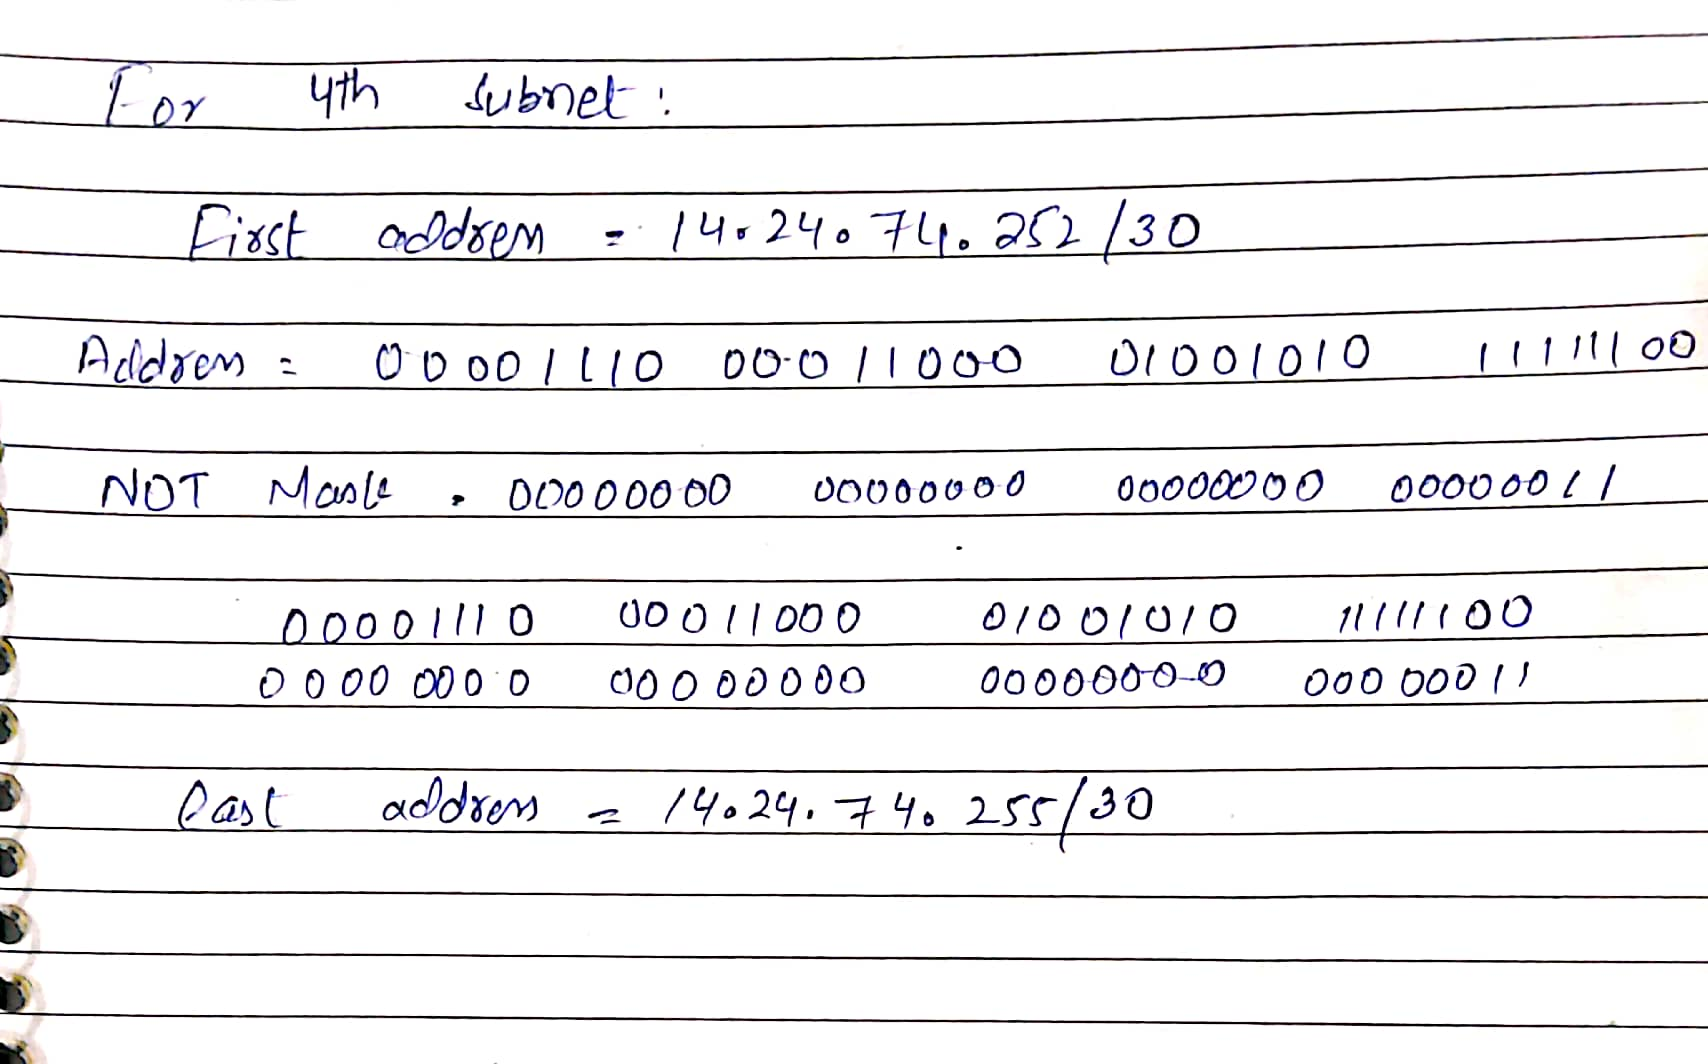 For 4th Subnet:
First address = 14.24.74.252/30
Address = 00001110 00011000 01001010 11111100
NOT Mask = 00000000 00000000 00000000 00000011
00001110 00011000 01001010 11111100
00000000 00000000 00000000 00000011
Last address = 14.24.74.255/30